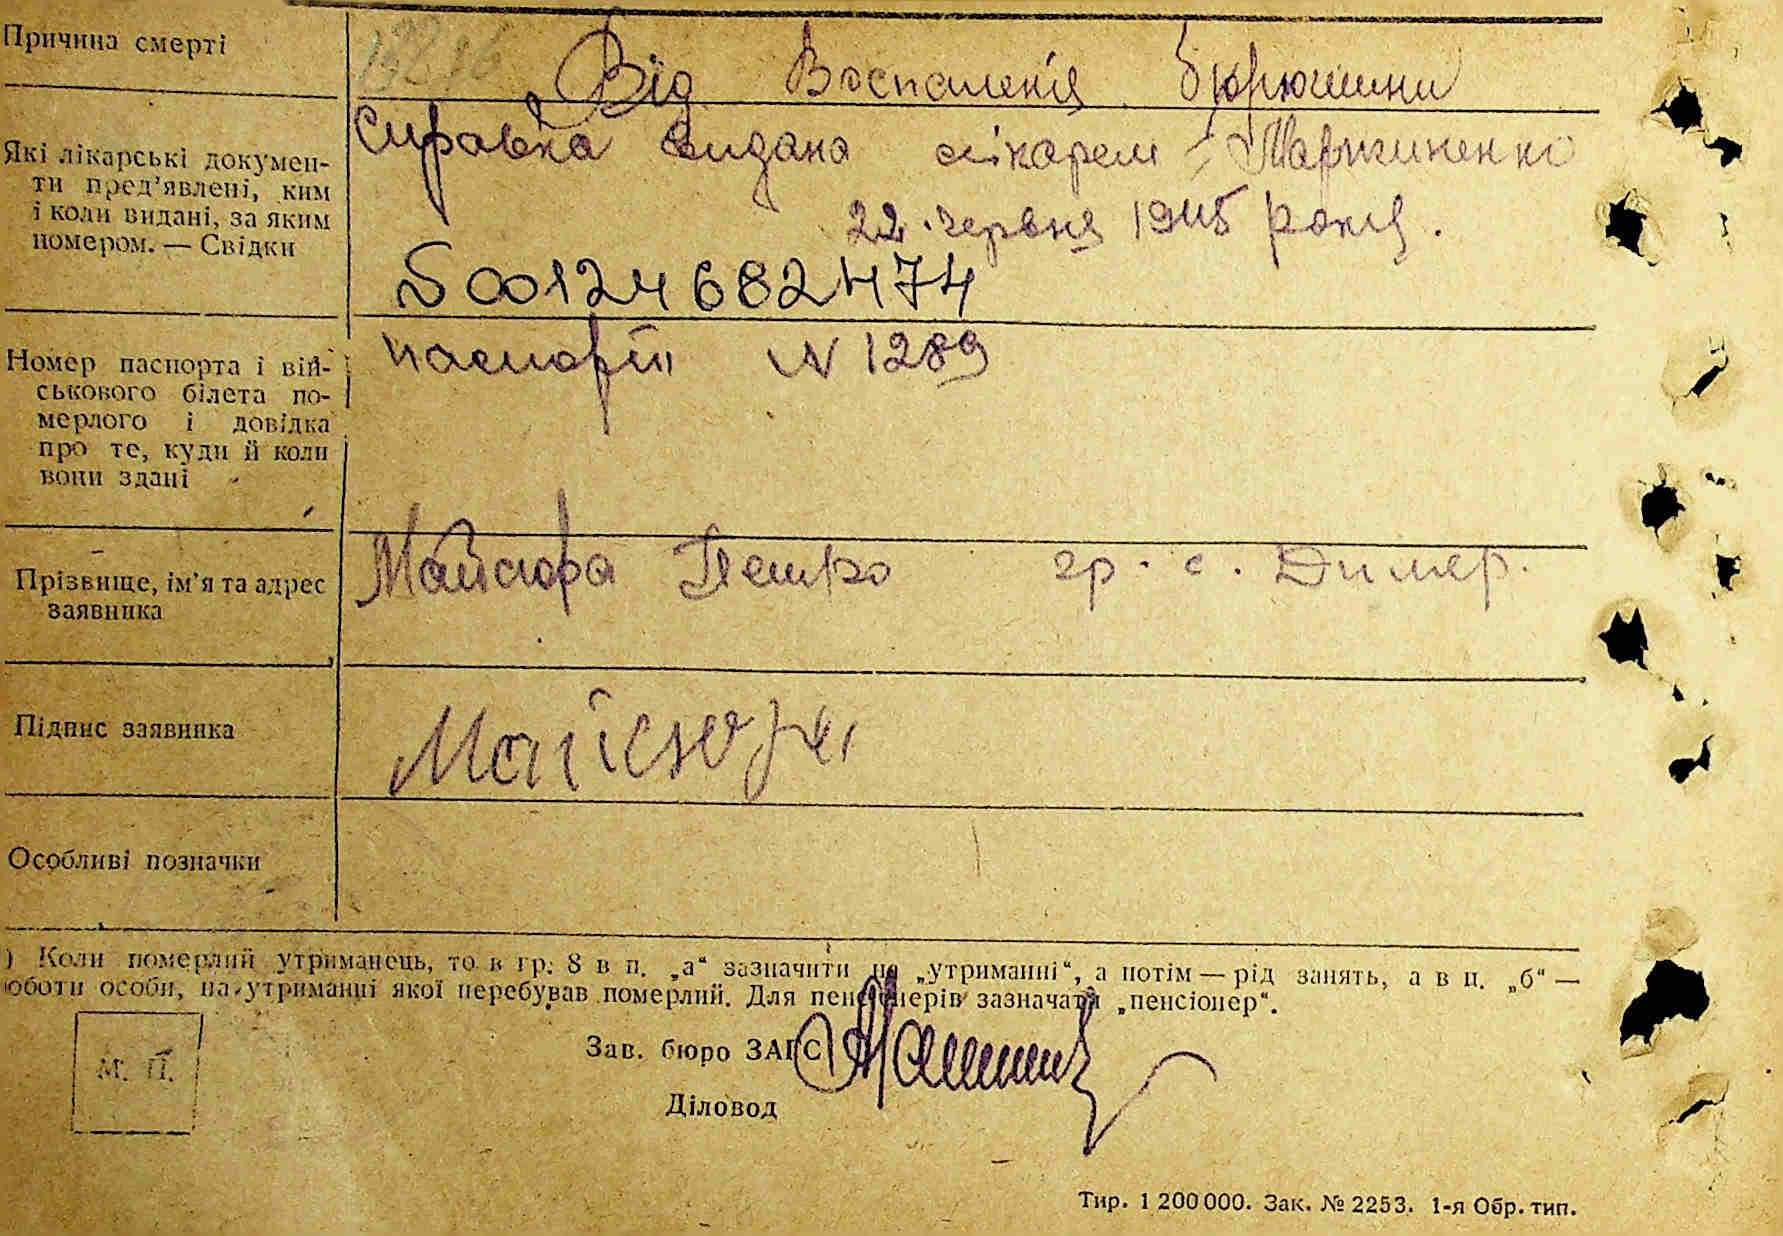 Причина смерті
Від Воспаления бюрюшини
Які лікарські докумен-
ти пред'явлені, ким
і коли видані, за яким
номером. — Свідки
Справка видана лікарем Мартиненко
22. червня 1945 року.
S00124682474
Номер паспорта і вій-
ськового білета по-
мерлого і довідка
про те, куди й коли
вони здані
паспорт N 1289
Прізвище, ім'я та адрес
заявника
Майсюра Петро гр. с. Димер.
Підпис заявника
Майсюра
Особливі позначки
) Коли померлий утриманець, то в гр. 8 в п. „а“ зазначити на „утриманні“, а потім — рід занять, а в п. „б“ —
оботи особи, на утриманні якої перебував померлий. Для пенсіонерів зазначати „пенсіонер“.
Зав. бюро ЗАГС
М. П.
Діловод
Тир. 1 200 000. Зак. № 2253. 1-я Обр. тип.